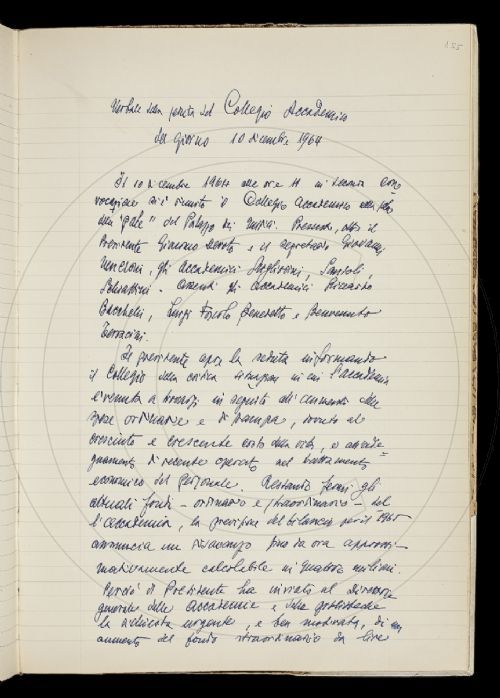 155
Verbale della seduta del Collegio Accademico
del giorno 10 dicembre 1964
Il 10 dicembre 1964 alle ore 11 in seconda con-
vocazione si è riunito il Collegio Accademico nella sala
delle "pale" del Palazzo di Presenti, oltre il
Presidente Giacomo Devoto e il segretario Giovanni
Nencioni, gli Accademici Migliorini, Santoli,
Schiaffini. Assenti gli Accademici Riccardo
Bacchelli, Luigi Foscolo Benedetto e Benvenuto
Terracini.
Il presidente apre la seduta informando
il Collegio della critica situazione in cui l'Accademia
è venuta a trovarsi in seguito all'aumento delle
spese ordinarie e di stampa, dovuto al
cresciuto e crescente costo della vita, e all'ade-
guamento di recente operato nel trattamento
economico del personale. Restando fermi gli
attuali fondi - ordinario e straordinario - del
l'Accademia, la previsione del bilancio per il 1965
annuncia un disavanzo fino da ora approssi-
mativamente calcolabile in quattro milioni.
Perciò il Presidente ha inviato al Direttore
generale delle Accademie e delle Biblioteche
la richiesta urgente, e ben motivata, di un
aumento del fondo straordinario da lire